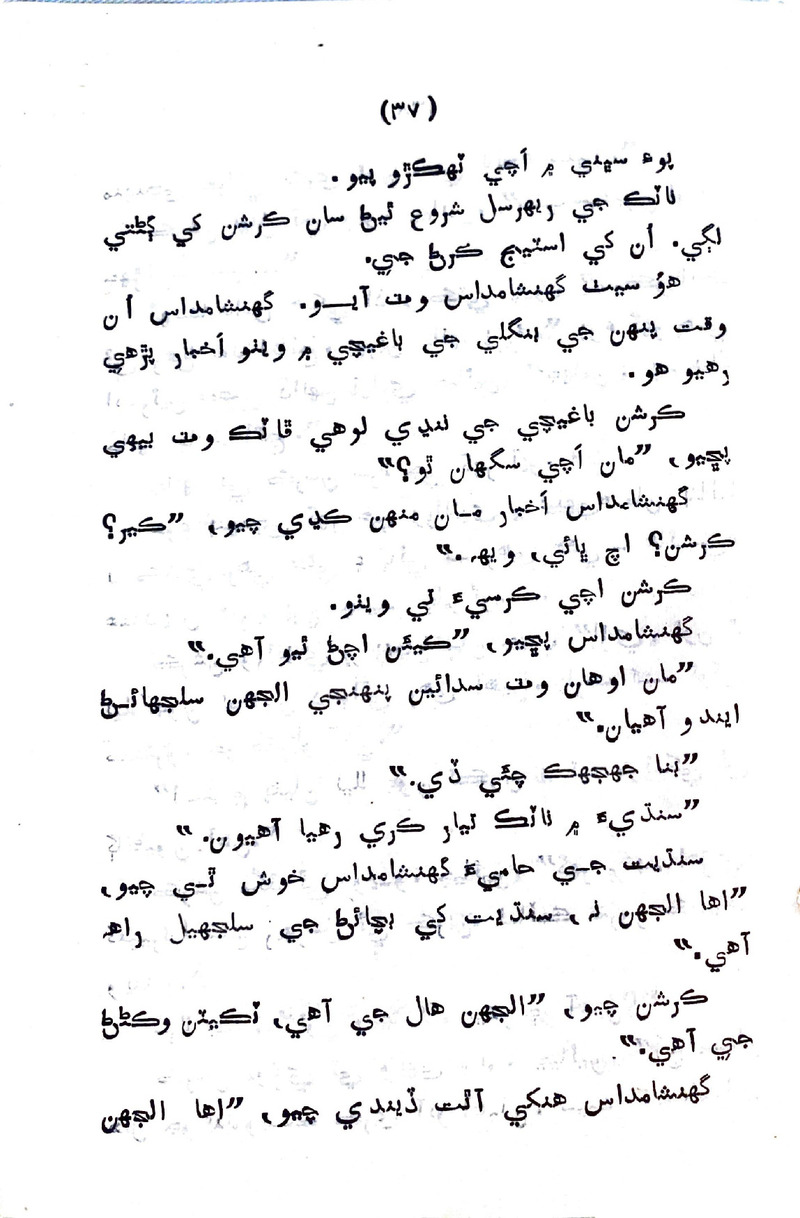 (٣٧)
پوءِ سڀني ۾ اَچي ٽهڪڙو پيو.
ناٽڪ جي ريهرسل شروع ٿيڻ سان ڪرشن کي ڳڻتي
لڳي. اُن کي اسٽيج ڪرڻ جي.
هوُ سيٺ گهنشامداس وٽ آيـــو. گهنشامداس اُن
وقت پنهن جي بنگلي جي باغيچي ۾ ويٺو اَخبار پڙهي
رهيو هو.
ڪرشن باغيچي جي ننڍي لوهي ڦاٽڪ وٽ بيهي
پڇيو، ”مان اَچي سگهان ٿو؟“
گهنشامداس اَخبار مـان منهن ڪڍي چيو، ”ڪير؟
ڪرشن؟ اچ ڀائي، ويهه.“
ڪرشن اچي ڪرسيءَ تي ويٺو.
گهنشامداس پڇيو، ”ڪيئن اچڻ ٿيو آهي.“
”مان اوهان وٽ سدائين پنهنجي الجهن سلجهائـڻ
ايندو آهيان.“
”بنا جهجهڪ چئي ڏي.“
”سنڌيءَ ۾ ناٽڪ تيار ڪري رهيا آهيون.“
سنڌيت جـي حاميءَ گهنشامداس خوش ٿـي چيو،
”اها الجهن نه، سنڌيت کي بچائڻ جي سلجهيل راهه
آهي.“
ڪرشن چيو، ”الجهن هال جي آهي، ٽڪيٽن وڪڻڻ
جي آهي.“
گهنشامداس هنکي آٿت ڏيندي چيو، ”اها الجهن